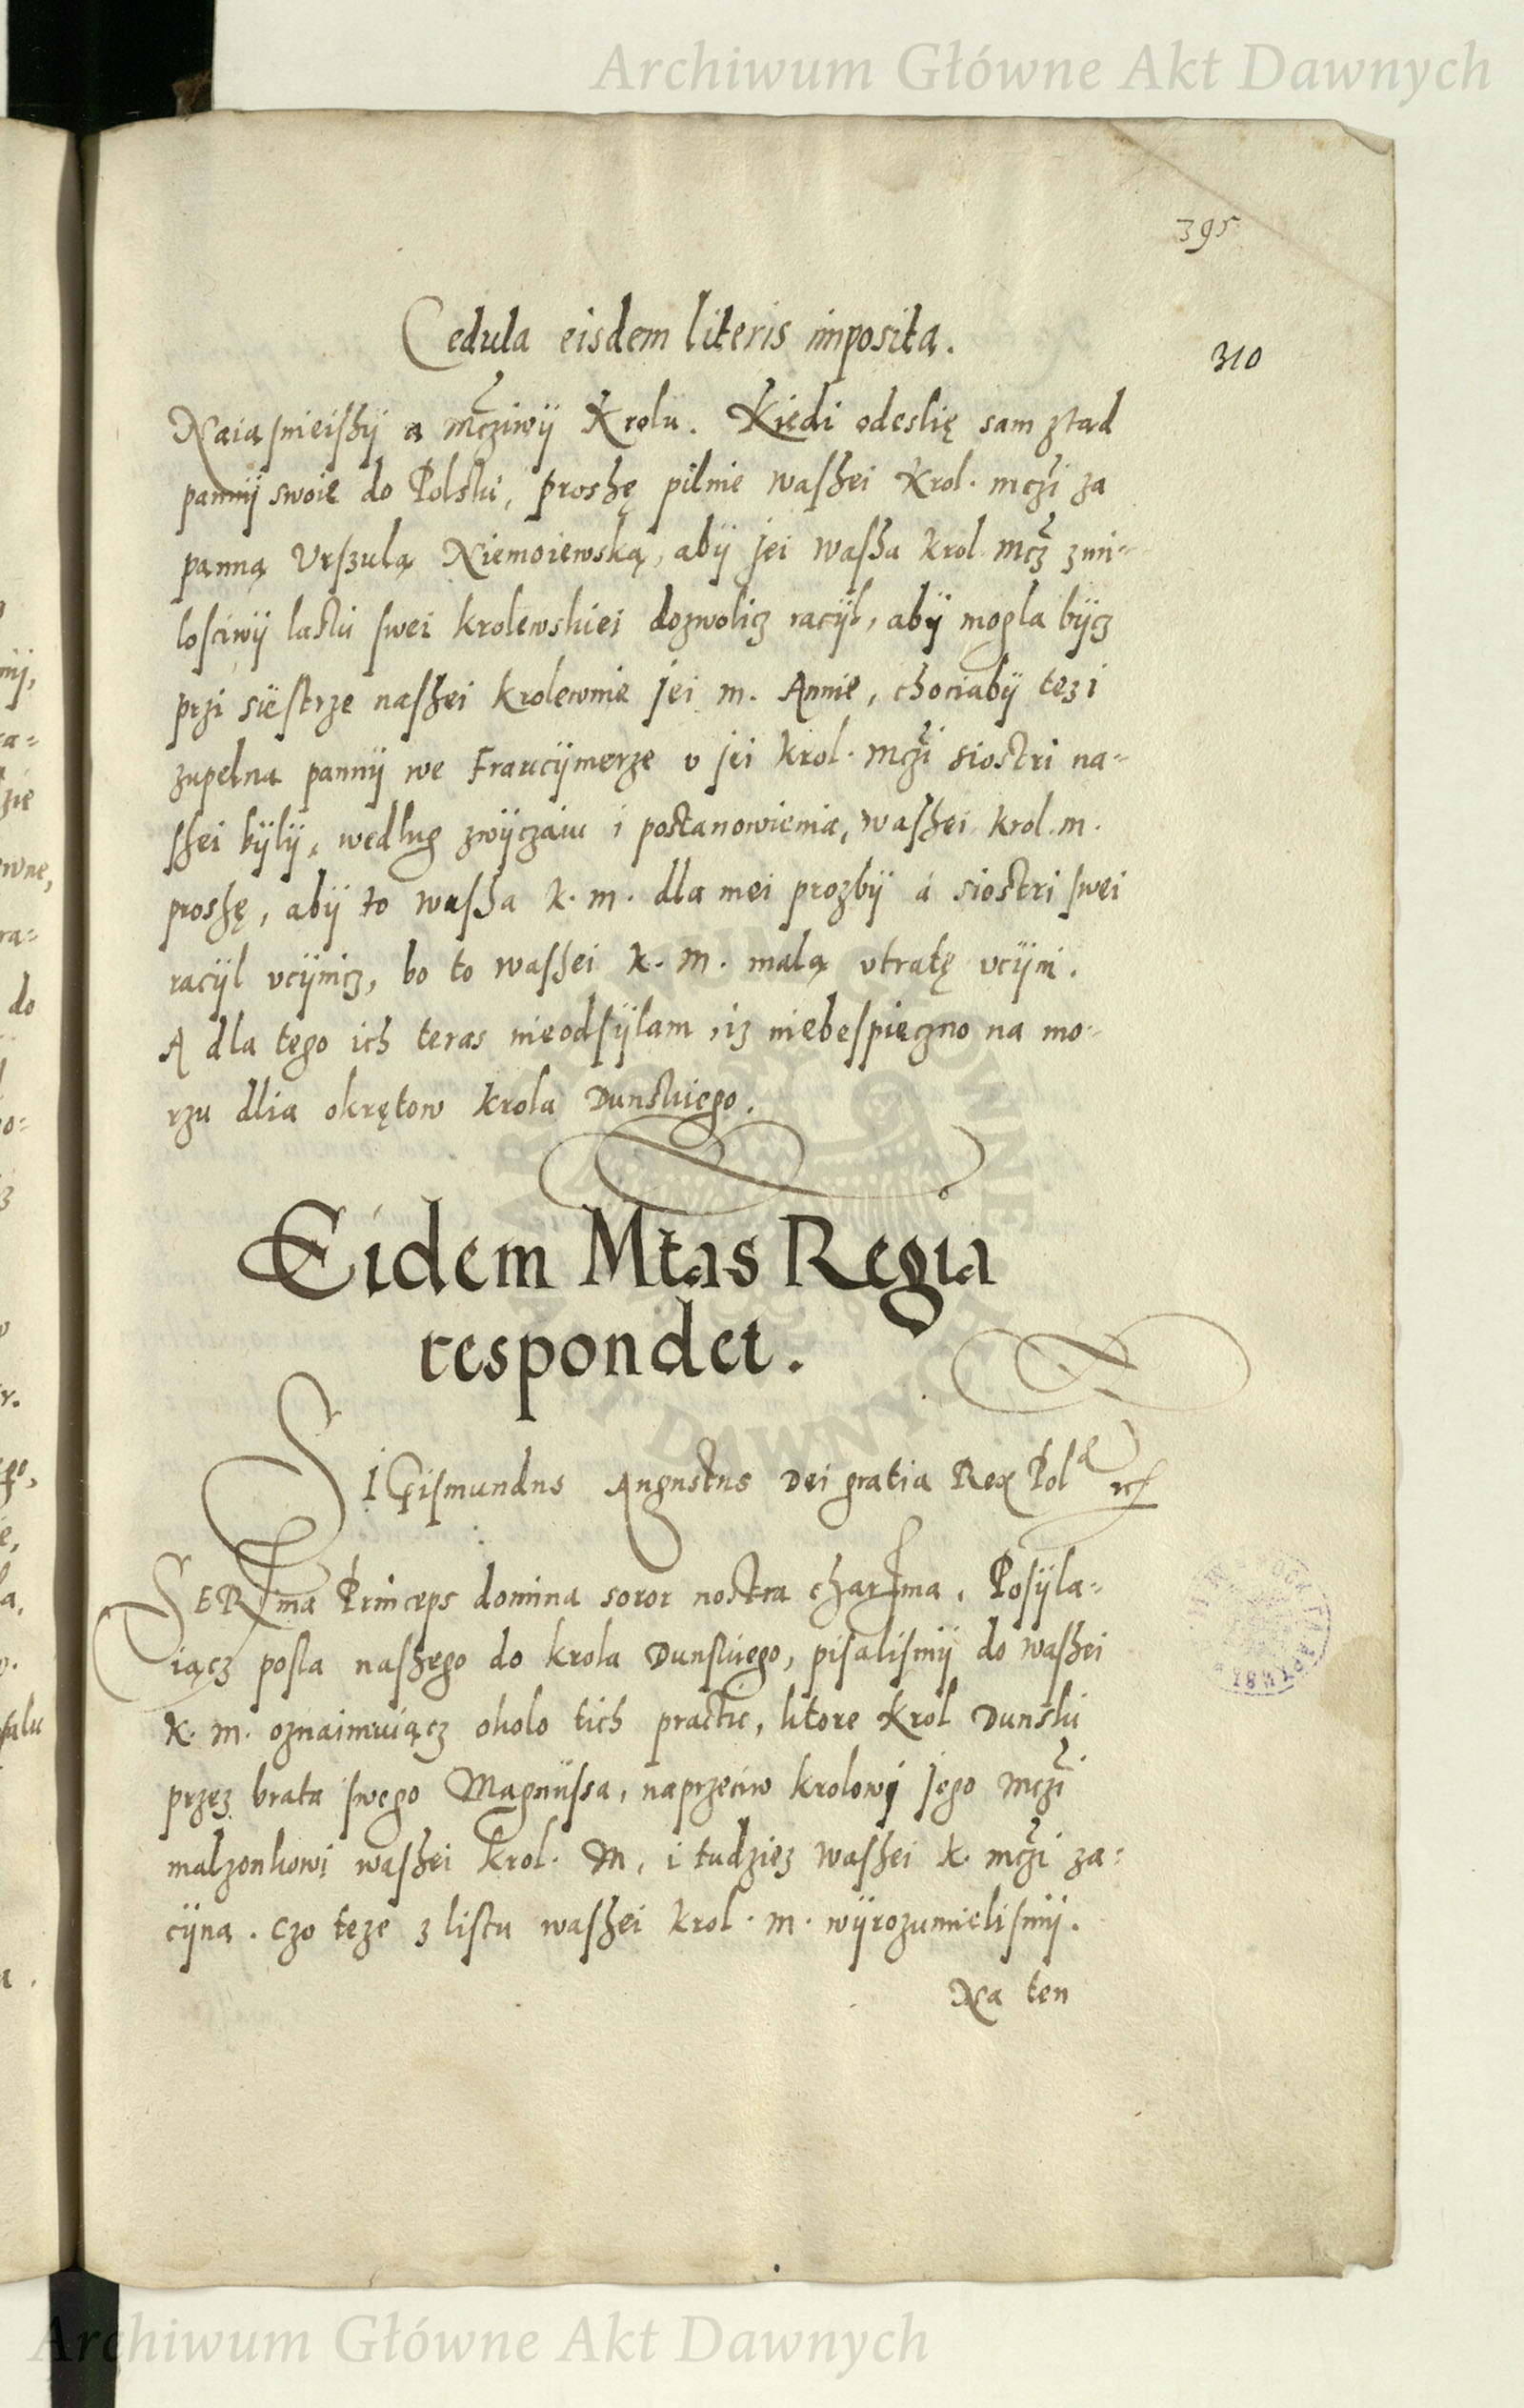 Archiwum Główne Akt Dawnych
395
Cedula eisdem literis imposita.
310
Naiasnieisßy a mcziwy Krolu. Kiedi odeslię sam ztad
panny swoie do Polski, proshę pilnie wasßei Krol. mczi za
panną Urszulą Niemoiewską, aby jei wasßa krol mcz z mi-
losciwy laski swei krolewskiei dozwolicz racyl, aby mogla bycz
przi siestrze nasßei krolewnie jei m. Annie, chociaby tez i
zupelna panny we Fraucymerze u jei krol. mczi siostri na-
sßei byly, wedlug zwyczaiu i postanowienia, wasßei krol. m.
prosßę, aby to wasßa k. m. dla mei prozby á siostri swei
racyl ucynicz, bo to wasßei k. m. malą utratę ucyni.
A dla tego ich teras nieodsylam, iz niebespieczno na mo-
rzu dlia okrętow krola Dunskiego.
Eidem Mtas Regia
respondet.
SIGismundus Augustus Dei gratia Rex Polae etc
SERma Princeps domina soror nostra charma. Posyla-
iącz posla nasßego do krola Dunskiego, pisalismy do wasßei
k. m. oznaimuiącz okolo tich practic, ktore Krol Dunski
przez brata swego Magnussa, naprzeciw krolowi jego mczi
malzonkowi wasßei krol. m, i tudziez wasßei k. mczi za-
cyna. Czo teze z listu wasßei krol. m. wyrozumielismy.
Na ten
Archiwum Główne Akt Dawnych